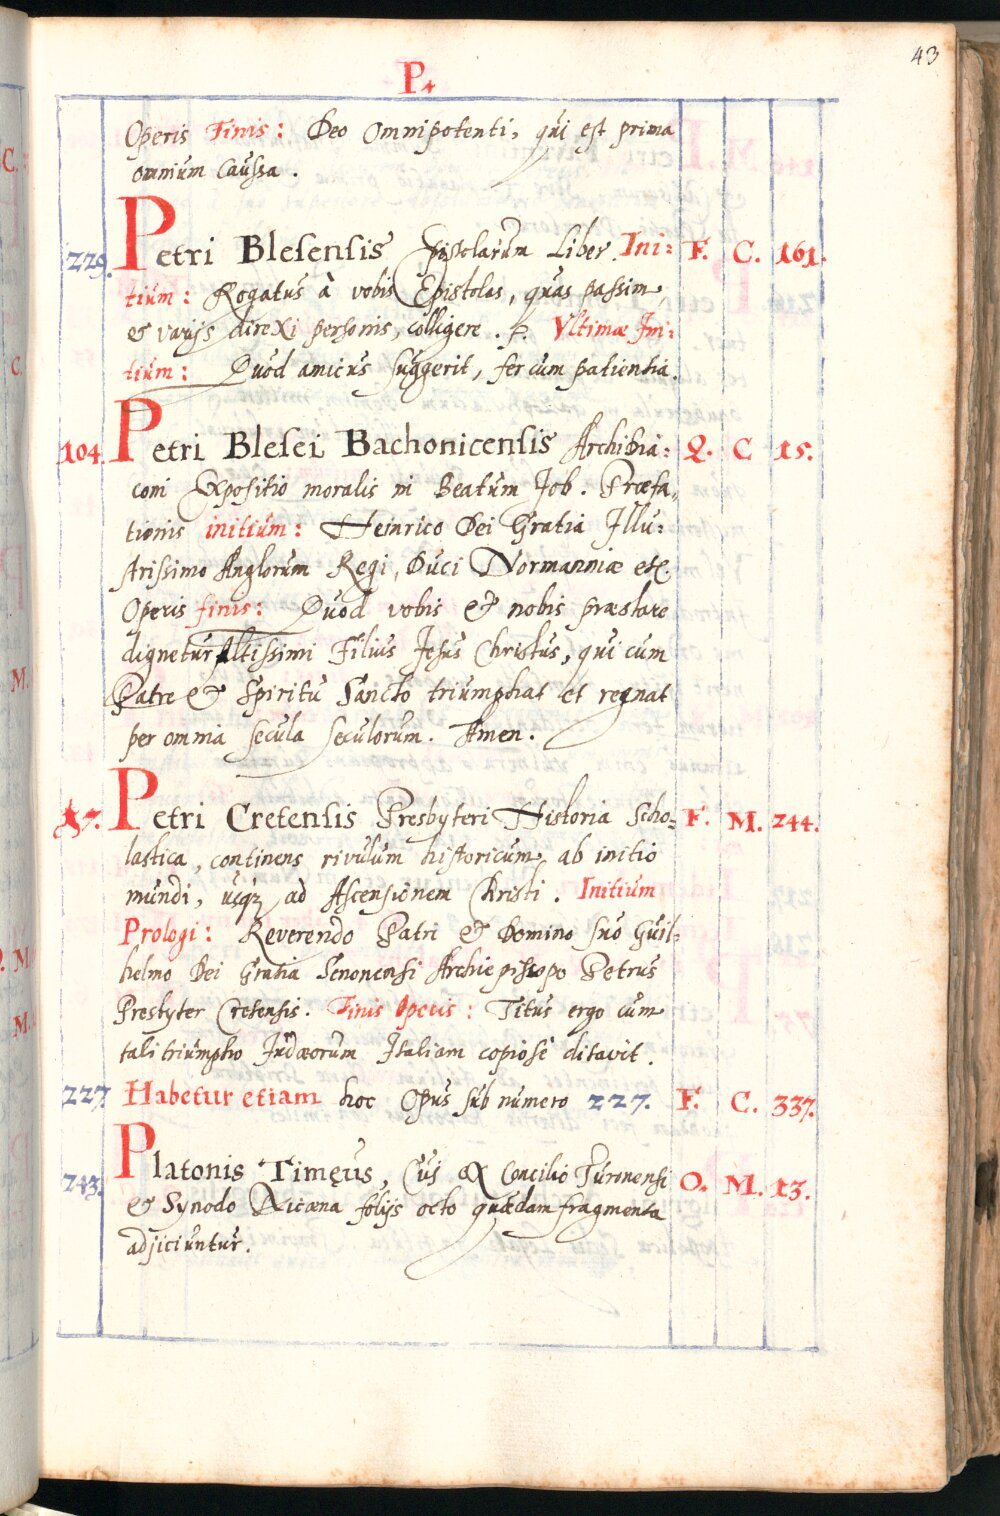 43
P.
Operis Finis: Deo Omnipotenti, qui est prima
omnium Caussa.
229. Petri Blesensis Epistolarum Liber. Ini: F. C. 161.
tium: Rogatus à vobis Epistolas, quas passim,
et varijs direxi personis, colligere. Ultimæ Ini:
tium: Quod amicus suggerit, fer cum patientia.
104. Petri Blesei Bachonicensis Archidia: Q. C 15.
coni Expositio moralis in Beatum Job. Præfa„
tionis initium: Heinrico Dei Gratia Illu:
strissimo Anglorum Regi, Duci Normanniæ etc.
Operis finis: Quod vobis et nobis præstare
dignetur Altissimi Filius Jesus Christus, qui cum
Patre et Spiritu Sancto triumphat et regnat
per omnia secula seculorum. Amen.
17. Petri Cretensis Presbyteri Historia Scho: F. M. 244.
lastica, continens rivulum historicum, ab initio
mundi, usq; ad Ascensionem Christi. Initium
Prologi: Reverendo Patri et Domino suo Guil:
helmo Dei Gratia Senonensi Archiepiscopo Petrus
Presbyter Cretensis. Finis Operis: Titus ergo cum
tali triumpho Judæorum Italiam copiosè ditavit.
227. Habetur etiam hoc Opus sub numero 227. F. C. 337.
243. Platonis Timęus, Cui ex Concilio Turonensi O. M. 13.
et Synodo Nicæna folijs octo quædam fragmenta
adjiciuntur.